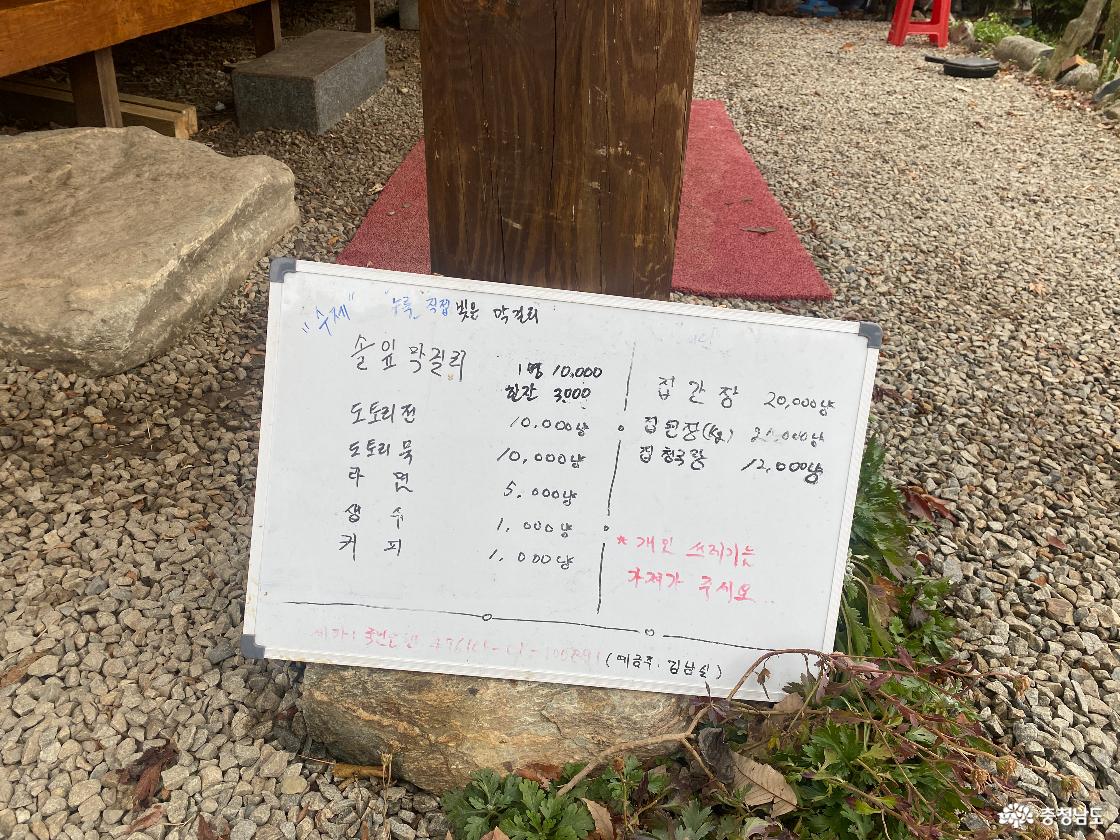 "수제" "누룩" 직접 빚은 막걸리
솔잎막걸리 1병 10,000
한잔 3,000
도토리전 10,000냥
도토리묵 10,000냥
라면 5,000냥
생수 1,000냥
커피 1,000냥
집간장 20,000냥
집된장(kg)
집청국장 12,000냥
* 개인 쓰레기는
가져가 주세요..
(예금주: 김남실)
충청남도